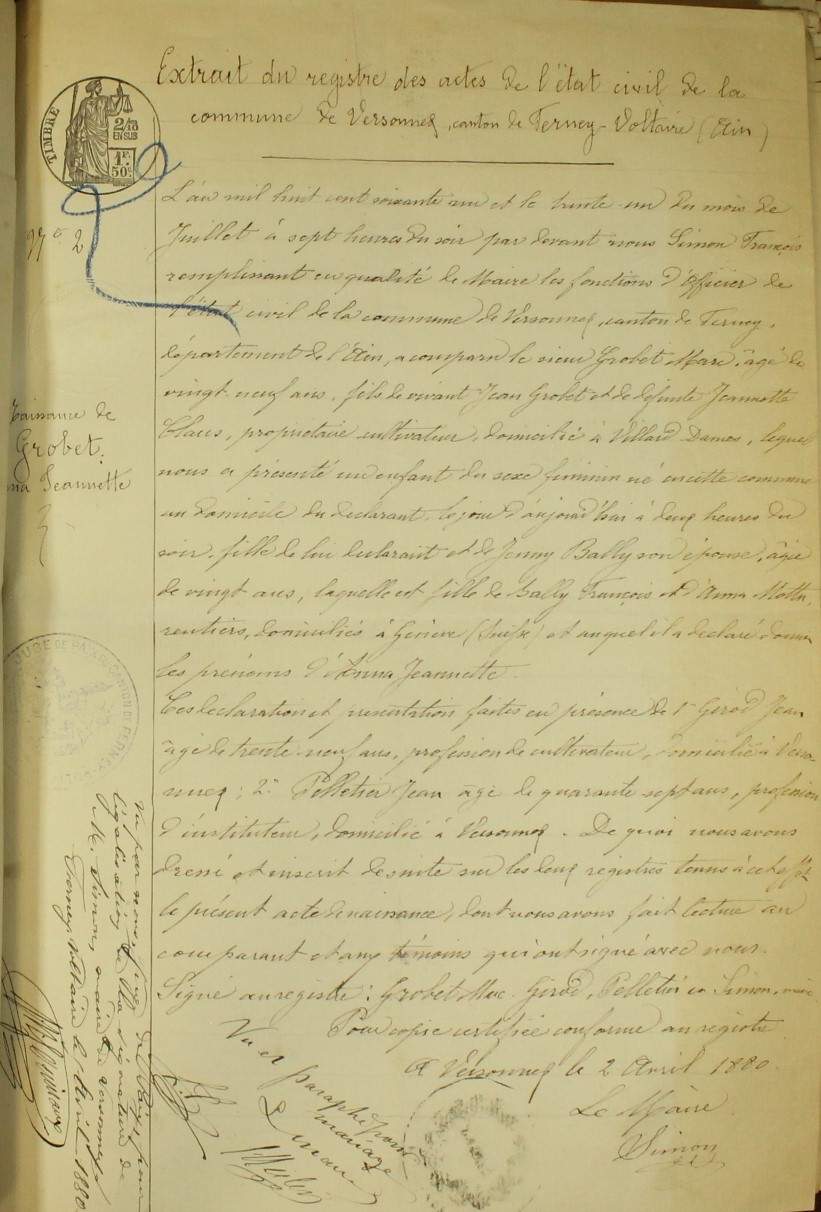 Extrait du registre des actes de l'état civil de la
commune de Versonnex, canton de Ferney-Voltaire (Ain)
TIMBRE
2/10
EN SUS
1F.
50c.
L'an mil huit cent soixante un et le trente-un du mois de
Juillet à sept heures du soir par devant nous Simon François
remplissant en qualité de Maire les fonctions d'Officier de
l'état civil de la commune de Versonnex, canton de Ferney,
département de l'Ain, a comparu le sieur Grobet Marc, âgé de
vingt-neuf ans, fils de vivant Jean Grobet et de défunte Jeannette
propriétaire cultivateur, domicilié à Villard Dames, lequel
nous a présenté un enfant du sexe féminin né en cette commune
au domicile du déclarant, le jour d'aujourd'hui à deux heures du
soir, fille de lui déclarant et de Jenny Bally son épouse, âgée
de vingt ans, laquelle est fille de Bally François et d'Anna
rentiers, domiciliés à Genève (Suisse) et auquel il a déclaré donner
les prénoms d'Anna Jeannette.
Ces déclaration et présentation faites en présence de 1° Girod Jean
âgé de trente-neuf ans, profession de cultivateur, domicilié à Verso-
nnex; 2° Pelletier Jean âgé de quarante sept ans, profession
d'instituteur, domicilié à Versonnex. De quoi nous avons
dressé et inscrit de suite sur les deux registres tenus à cet effet
le présent acte de naissance, dont nous avons fait lecture au
comparant et aux témoins qui ont signé avec nous.
Signé au registre: Grobet Marc. Girod, Pelletier et Simon, maire
Pour copie certifiée conforme au registre
A Versonnex le 2 Avril 1880.
Le Maire
Simon
2
Naissance de
Grobet.
Anna Jeannette
JUGE DE PAIX DU CANTON DE FERNEY-VOLTAIRE
Vu par nous, Juge de Paix, pour
légalisation de la signature de
Mr. Simon, maire de Versonnex
Ferney-Voltaire le Avril 1880
Vu et paraphé pour
mariage